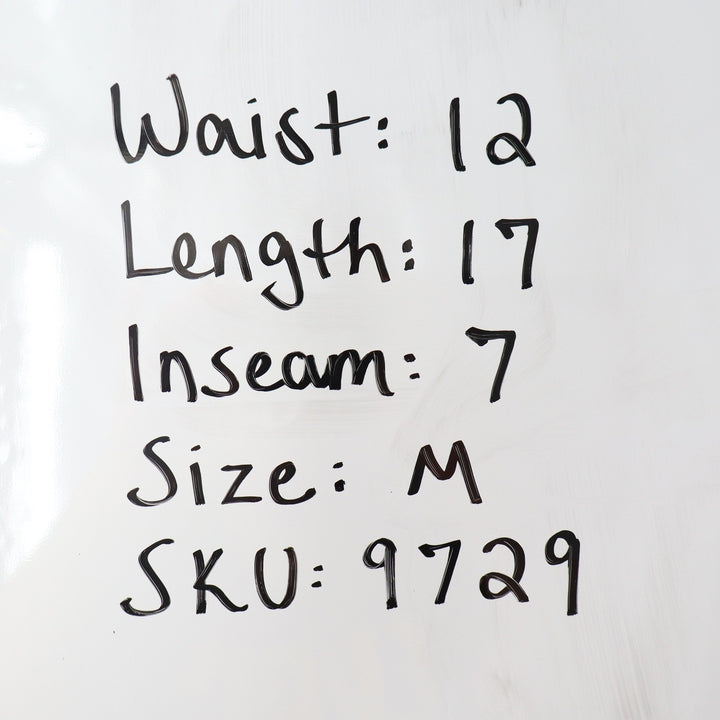 Waist: 12
Length: 17
Inseam: 7
Size: M
SKU: 9729